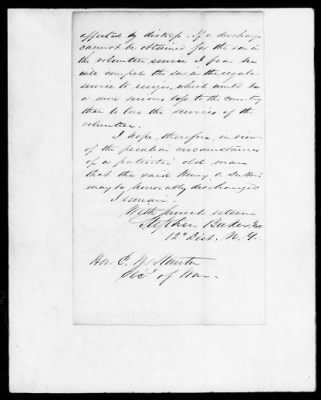 affected by distress. If a discharge
cannot be obtained for the son in
the volunteer service I fear he
will compel the son in the regular
service to resign, which would be
a more serious loss to the country
than to lose the services of the
volunteer.
I hope, therefore, in view
of the peculiar circumstances
of a patriotic old man
that the said Henry
may be honorably discharged
I remain
With much esteem
Stephen Baker
12" Dist. N. Y.
Hon. E. M. Stanton
Sec' of War